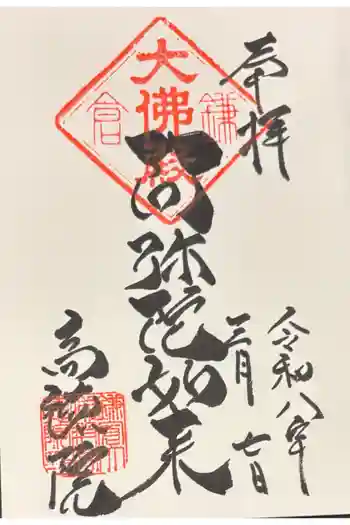 奉拝
令和八年
三月七日
大佛殿
鎌倉
阿弥陀如来
高徳院